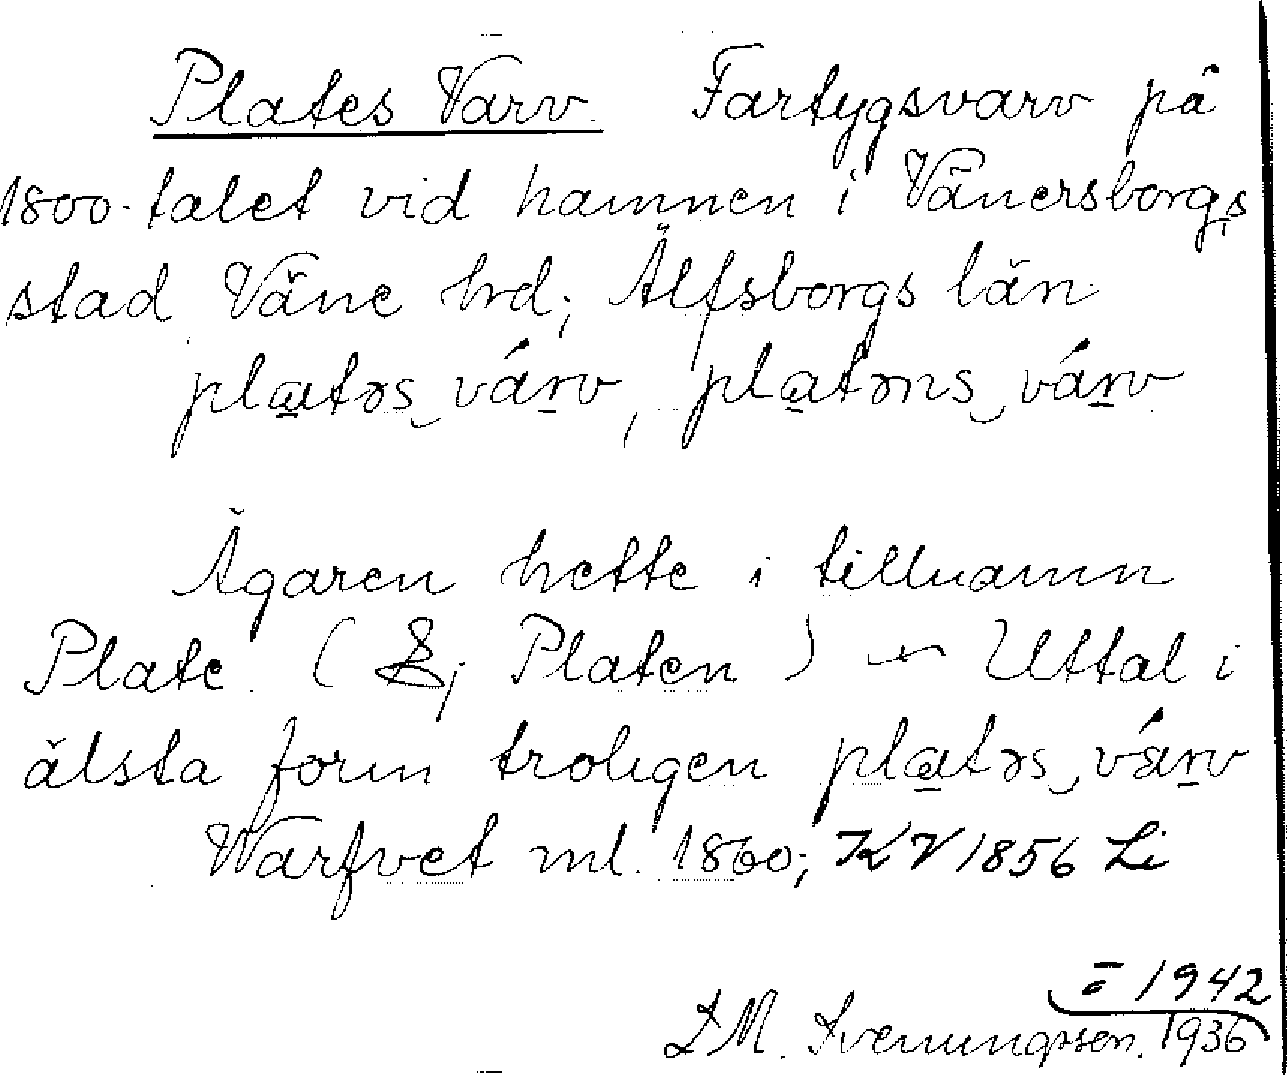 Plates Varv. Fartygsvarv på
1800-talet vid hamnen i Vänersborgs
stad Väne hrd; Älfsborgs län
pla̲təs‿vár̲v, pla̲təns‿vár̲v
Ägaren hette i tillnamn
Plate. (Ej Platen) — Uttal i
älsta form troligen pla̲təs‿vár̲v
Warfvet ml. 1860; KV 1856 Li
1942
L M. Svenungsson. 1936